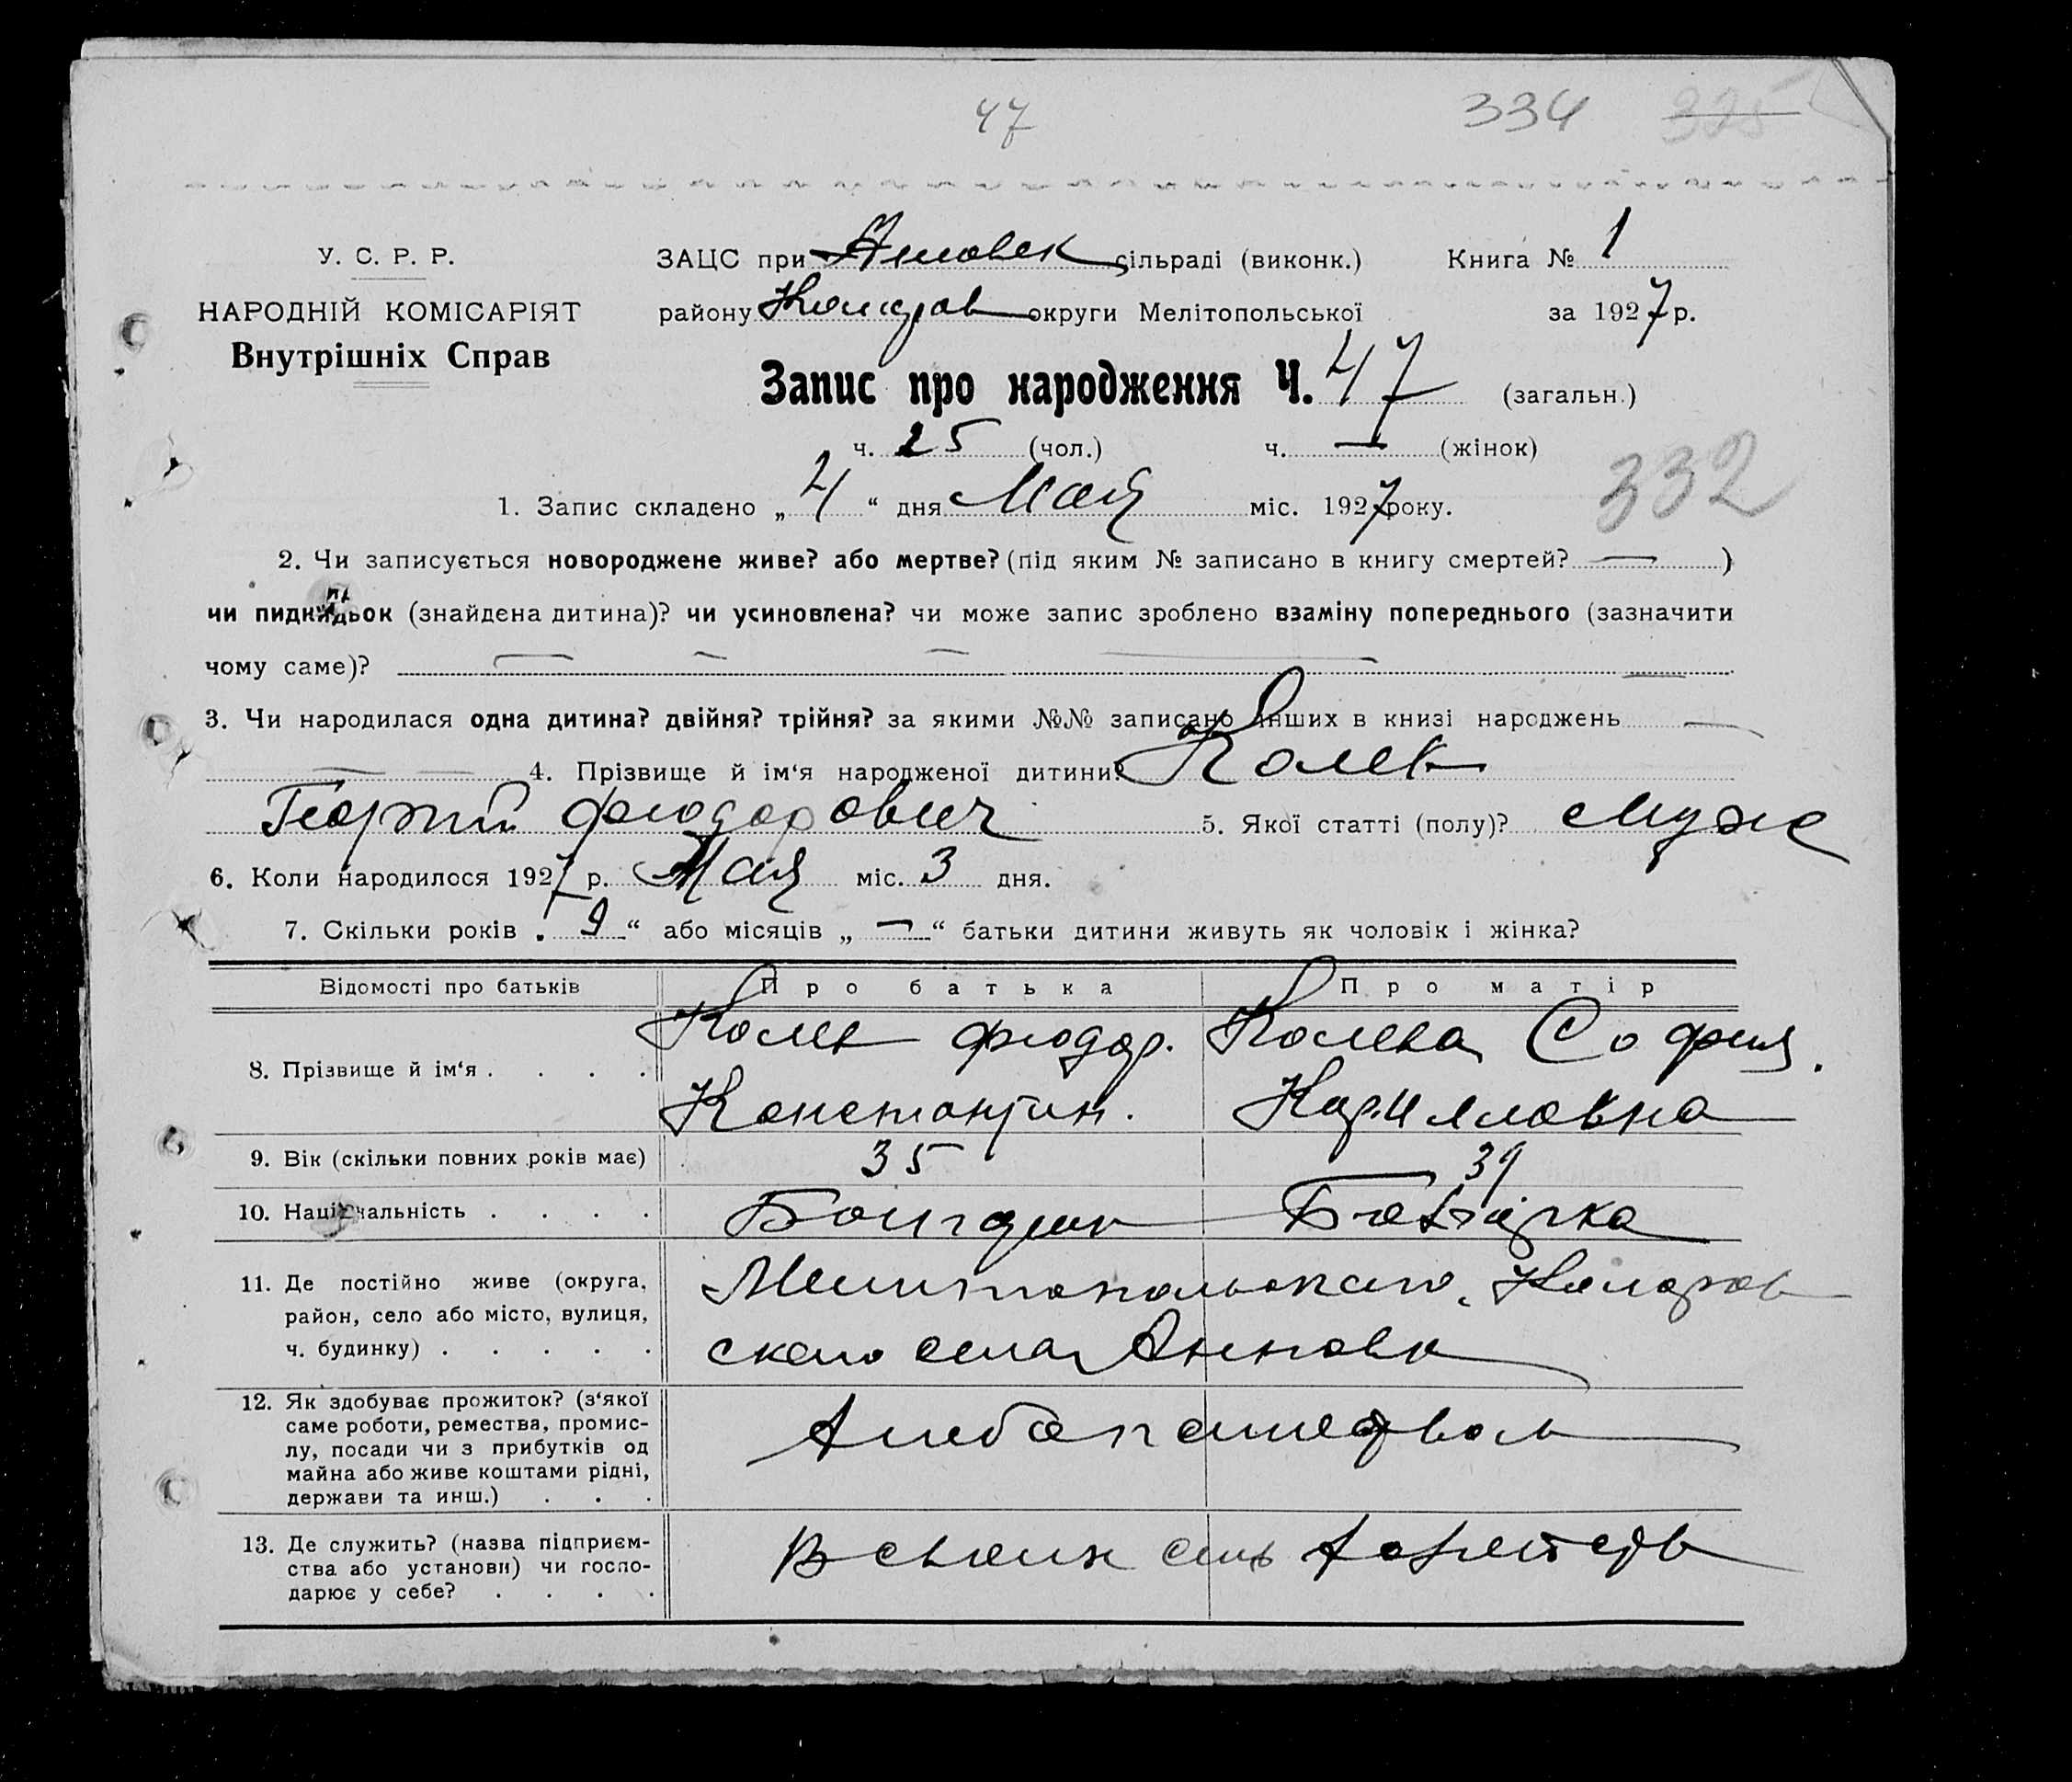 47 334 325
У. С. Р. Р.
НАРОДНІЙ КОМІСАРІЯТ
Внутрішніх Справ
ЗАЦС при сільраді (виконк.) Книга № 1
району округи Мелітопольської за 1927 р.
Запис про народження Ч. 47 (загальн.)
ч. 25 (чол.) ч. — (жінок)
332
1. Запис складено „ 4 “ дня Мая міс. 1927 року.
2. Чи записується новороджене живе? або мертве? (під яким № записано в книгу смертей? — )
чи пидкидьок (знайдена дитина)? чи усиновлена? чи може запис зроблено взаміну попереднього (зазначити
чому саме)? — — — —
3. Чи народилася одна дитина? двійня? трійня? за якими №№ записано інших в книзі народжень —
— — 4. Прізвище й ім‘я народженої дитини? Колев
Георгий Фиодорович 5. Якої статті (полу)? муж
6. Коли народилося 1927 р. Мая міс. 3 дня.
7. Скільки років „ 9 “ або місяців „ — “ батьки дитини живуть як чоловік і жінка?
Відомості про батьків Про батька Про матір
8. Прізвище й ім‘я . . . . Колев Фиодор. Колева София.
Константин. Кирилловна
9. Вік (скільки повних років має) 35 39
10. Національність . . . . Болгарин Болгарка
11. Де постійно живе (округа,
район, село або місто, вулиця,
ч. будинку) . . . . .
Мелитопольского, Коларов
ского села Анновк
12. Як здобуває прожиток? (з‘якої
саме роботи, ремества, промис-
лу, посади чи з прибутків од
майна або живе коштами рідні,
держави та инш.) . . .
Хлебопашеством
13. Де служить? (назва підприєм-
ства або установи) чи госпо-
дарює у себе? . . . .
В своем